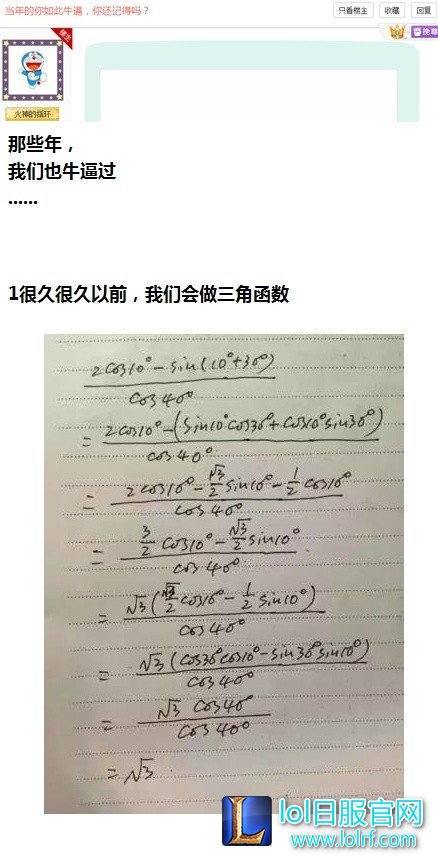 当年的你如此牛逼,你还记得吗?
只看楼主 收藏 回复
楼主
火神的指环
那些年,
我们也牛逼过
......
1很久很久以前,我们会做三角函数
2cos10°-sin(10°+30°)
cos40°
= 2cos10°-(sin10°cos30°+cos10°sin30°)
cos40°
= 2cos10°-√3/2 sin10°-1/2 cos10°
cos40°
= 3/2 cos10°-√3/2 sin10°
cos40°
= √3(√3/2 cos10°-1/2 sin10°)
cos40°
= √3(cos30°cos10°-sin30°sin10°)
cos40°
= √3 cos40°
cos40°
= √3
L lol日服官网
www.lolrf.com